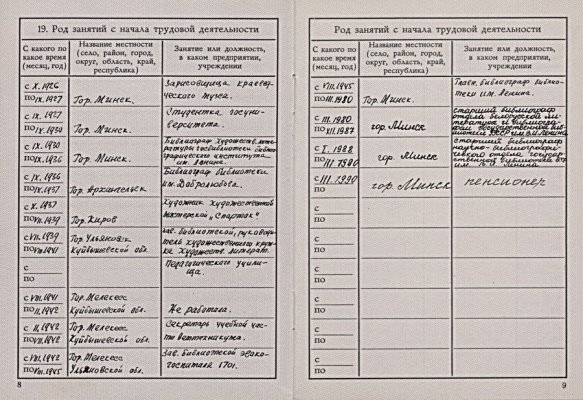 19. Род занятий с начала трудовой деятельности
С какого по какое время (месяц, год)
Название местности (село, район, город, округ, область, край, республика)
Занятие или должность, в каком предприятии, учреждении
с X.1926
по IX.1927
Гор. Минск.
Зарисовщица краевед-
ческого музея.
с IX.1927
по IX.1930
Гор. Минск.
Студентка госуни-
верситета.
с IX.1930
по IX.1936
Гор. Минск.
Библиограф художеств. лите-
ратуры госбиблиотеки библио-
графического института
им. Ленина.
с IX.1936
по IX.1937
Гор. Архангельск
Библиограф библиотеки
им. Добролюбова.
с IX.1937
по VII.1939
Гор. Киров
Художник художественной
мастерской „Спартак“
с VII.1939
по VII.1941
Гор. Ульяновск
Куйбышевской обл.
Зав. библиотекой, руково-
дитель художественного круж-
ка художеств. литерат.
с
по
Педагогического учили-
ща.
с VIII.1941
по II.1942
Гор. Мелекесс
Куйбышевской обл.
Не работала.
с II.1942
по VII.1942
Гор. Мелекесс
Куйбышевской обл.
Секретарь учебной час-
ти ветехникума.
с VII.1942
по VIII.1945
Гор. Мелекесс
Ульяновской обл.
Зав. библиотекой эвако-
госпиталя 1701.
8
Род занятий с начала трудовой деятельности
С какого по какое время (месяц, год)
Название местности (село, район, город, округ, область, край, республика)
Занятие или должность, в каком предприятии, учреждении
с VIII.1945
по III.1980
Гор. Минск.
Главн. библиограф библио-
теки им. Ленина.
с III.1980
по XII.1987
гор. Минск
старший библиограф
отдела белорусской ли-
тературы и библиогра-
фии государственной биб-
лиотеки БССР им. В.И. Ленина
с I.1988
по III.1990
гор. Минск
старший библиограф
научно-библиографи-
ческого отдела государ-
ственной библиотеки БССР
им. В.И. Ленина
с III.1990
по
гор. Минск
пенсионер
с
по
с
по
с
по
с
по
с
по
с
по
9